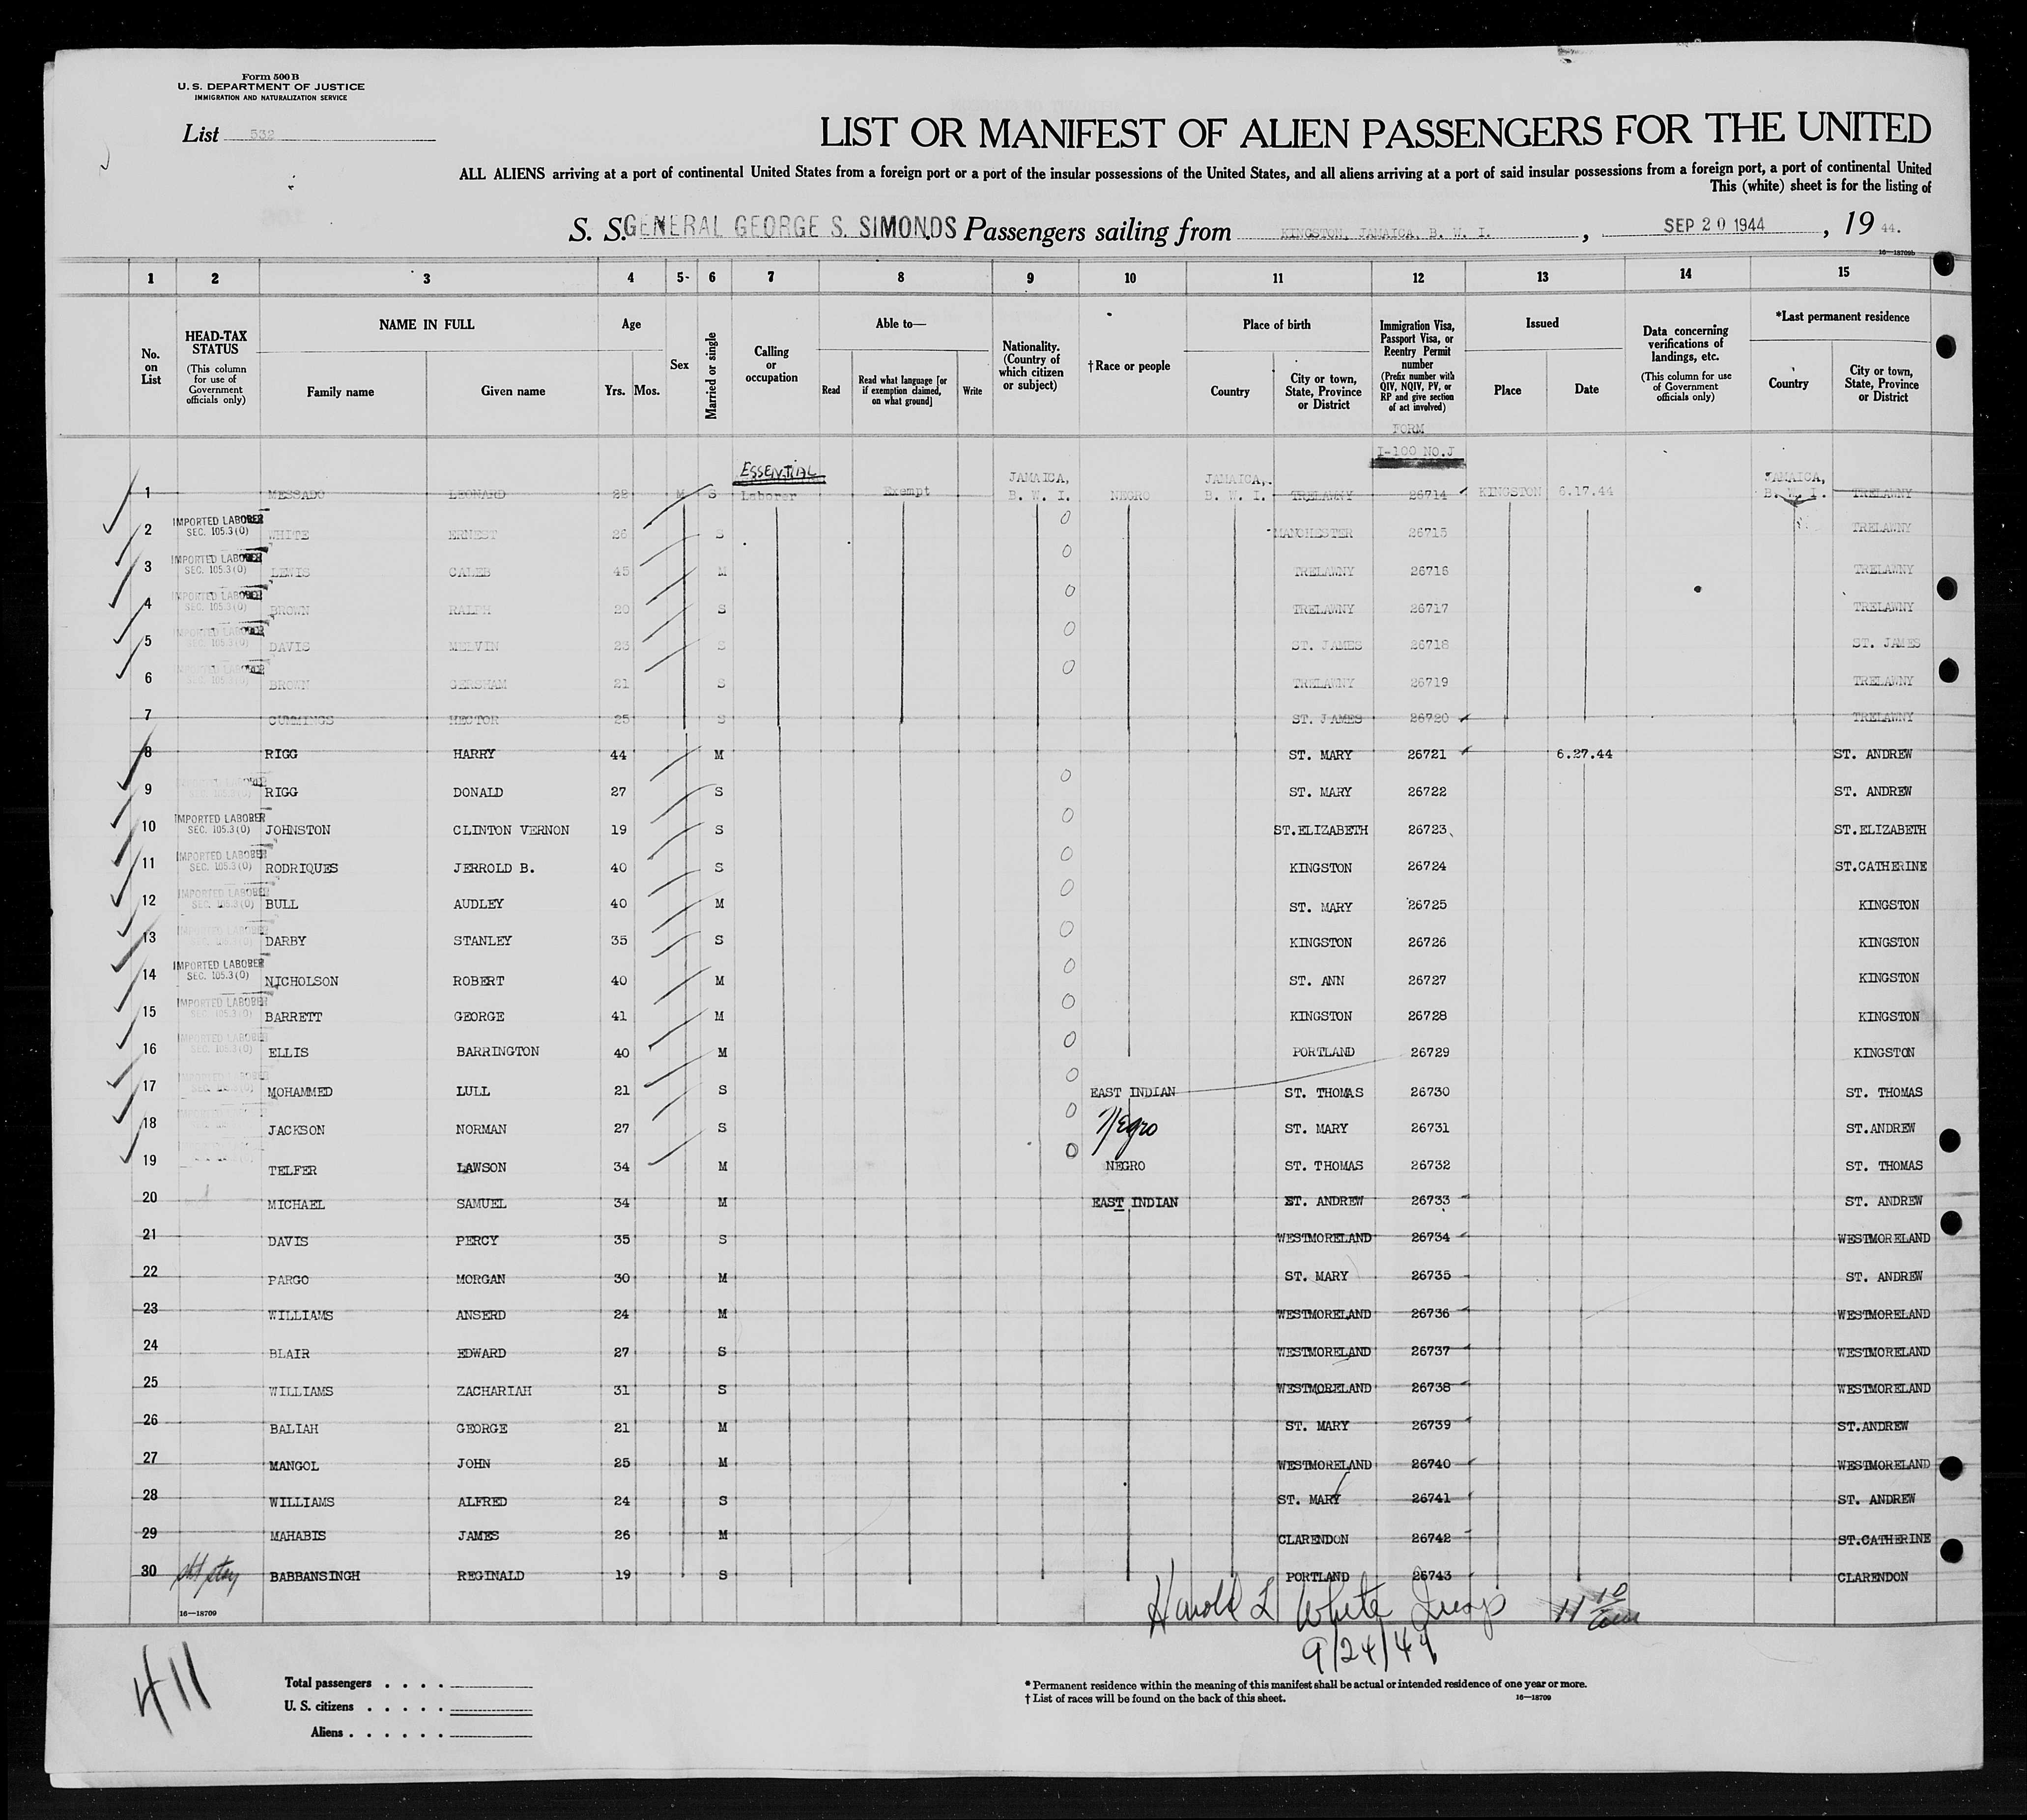 Form 500 B
U. S. DEPARTMENT OF JUSTICE
IMMIGRATION AND NATURALIZATION SERVICE
List 532
LIST OR MANIFEST OF ALIEN PASSENGERS FOR THE UNITED
ALL ALIENS arriving at a port of continental United States from a foreign port or a port of the insular possessions of the United States, and all aliens arriving at a port of said insular possessions from a foreign port, a port of continental United
This (white) sheet is for the listing of
S. S. GENERAL GEORGE S. SIMONDS Passengers sailing from KINGSTON, JAMAICA, B. W. I. , SEP 20 1944 , 19 44.
16—18709b
1 2 3 4 5 6 7 8 9 10 11 12 13 14 15
No. on List
HEAD-TAX STATUS (This column for use of Government officials only)
NAME IN FULL
Family name Given name
Age
Yrs. Mos.
Sex
Married or single
Calling or occupation
Able to—
Read Read what language [or if exemption claimed, on what ground] Write
Nationality. (Country of which citizen or subject)
† Race or people
Place of birth
Country City or town, State, Province or District
Immigration Visa, Passport Visa, or Reentry Permit number (Prefix number with QIV, NQIV, PV, or RP and give section of act involved)
FORM
I-100 NO.J
Issued
Place Date
Data concerning verifications of landings, etc. (This column for use of Government officials only)
*Last permanent residence
Country City or town, State, Province or District
ESSENTIAL
1 MESSADO LEONARD 22 M S Laborer Exempt JAMAICA, B. W. I. NEGRO JAMAICA, B. W. I. TRELAWNY 26714 KINGSTON 6.17.44 JAMAICA, B. W. I. TRELAWNY
2 IMPORTED LABORER SEC. 105.3(0) WHITE ERNEST 26 S MANCHESTER 26715 TRELAWNY
3 IMPORTED LABORER SEC. 105.3(0) LEWIS CALEB 45 M TRELAWNY 26716 TRELAWNY
4 IMPORTED LABORER SEC. 105.3(0) BROWN RALPH 20 S TRELAWNY 26717 TRELAWNY
5 IMPORTED LABORER SEC. 105.3(0) DAVIS MELVIN 23 S ST. JAMES 26718 ST. JAMES
6 IMPORTED LABORER SEC. 105.3(0) BROWN GERSHAM 21 S TRELAWNY 26719 TRELAWNY
7 CUMMINGS HECTOR 25 S ST. JAMES 26720 TRELAWNY
8 RIGG HARRY 44 M ST. MARY 26721 6.27.44 ST. ANDREW
9 RIGG DONALD 27 S ST. MARY 26722 ST. ANDREW
10 IMPORTED LABORER SEC. 105.3(0) JOHNSTON CLINTON VERNON 19 S ST.ELIZABETH 26723 ST.ELIZABETH
11 IMPORTED LABORER SEC. 105.3(0) RODRIQUES JERROLD B. 40 S KINGSTON 26724 ST.CATHERINE
12 IMPORTED LABORER SEC. 105.3(0) BULL AUDLEY 40 M ST. MARY 26725 KINGSTON
13 IMPORTED LABORER SEC. 105.3(0) DARBY STANLEY 35 S KINGSTON 26726 KINGSTON
14 IMPORTED LABORER SEC. 105.3(0) NICHOLSON ROBERT 40 M ST. ANN 26727 KINGSTON
15 IMPORTED LABORER SEC. 105.3(0) BARRETT GEORGE 41 M KINGSTON 26728 KINGSTON
16 IMPORTED LABORER SEC. 105.3(0) ELLIS BARRINGTON 40 M PORTLAND 26729 KINGSTON
17 MOHAMMED LULL 21 S EAST INDIAN ST. THOMAS 26730 ST. THOMAS
18 JACKSON NORMAN 27 S Negro ST. MARY 26731 ST.ANDREW
19 TELFER LAWSON 34 M NEGRO ST. THOMAS 26732 ST. THOMAS
20 MICHAEL SAMUEL 34 M EAST INDIAN ST. ANDREW 26733 ST. ANDREW
21 DAVIS PERCY 35 S WESTMORELAND 26734 WESTMORELAND
22 PARGO MORGAN 30 M ST. MARY 26735 ST. ANDREW
23 WILLIAMS ANSERD 24 M WESTMORELAND 26736 WESTMORELAND
24 BLAIR EDWARD 27 S WESTMORELAND 26737 WESTMORELAND
25 WILLIAMS ZACHARIAH 31 S WESTMORELAND 26738 WESTMORELAND
26 BALIAH GEORGE 21 M ST. MARY 26739 ST.ANDREW
27 MANGOL JOHN 25 M WESTMORELAND 26740 WESTMORELAND
28 WILLIAMS ALFRED 24 S ST. MARY 26741 ST. ANDREW
29 MAHABIS JAMES 26 M CLARENDON 26742 ST.CATHERINE
30 BABBANSINGH REGINALD 19 S PORTLAND 26743 CLARENDON
16—18709
Harold L White Insp
9/24/44
411
Total passengers
U. S. citizens
Aliens
* Permanent residence within the meaning of this manifest shall be actual or intended residence of one year or more.
† List of races will be found on the back of this sheet.
16—18709